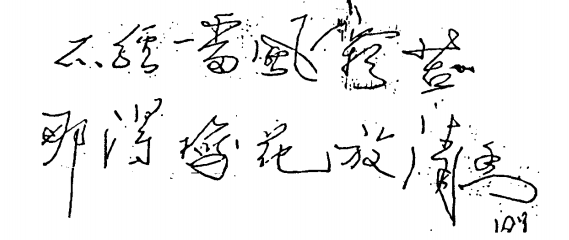 不經一番風霜苦
那得梅花放清香